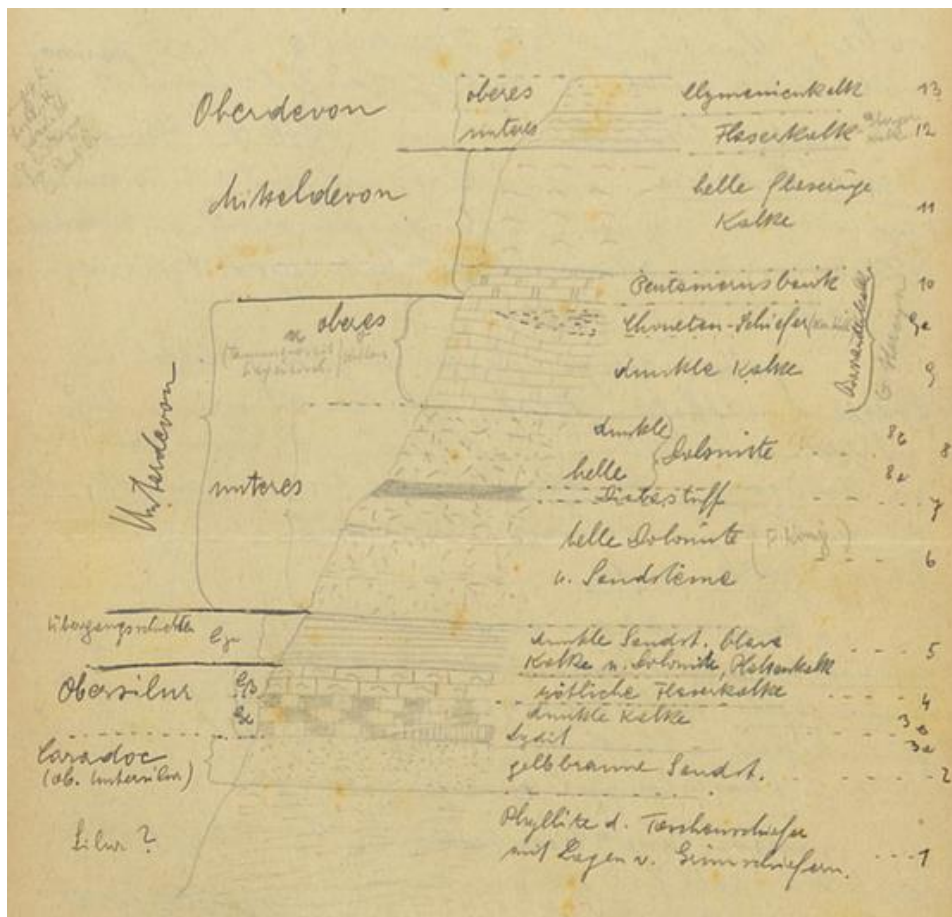 Oberdevon oberes Clymenienkalk 13
unteres Flaserkalk 12
Mitteldevon helle flaserige
Kalke 11
Pentamerusbank 10
oberes Choneten-Schiefer 9a
dunkle Kalke 9
Unterdevon
dunkle 8b
Dolomite 8
unteres helle 8a
Diabastuff 7
helle Dolomite
u. Sandsteine 6
Übergangsschichten dunkle Sandst. blaue 5
Kalke u. Dolomite, Plattenkalk
Obersilur eβ rötliche Flaserkalke 4
dunkle Kalke 3b
Lydit 3a
Caradoc
(ob. Untersilur) gelbbraune Sandst. 2
Silur? Phyllite d.
mit Lagen v. Grünschiefern. 1